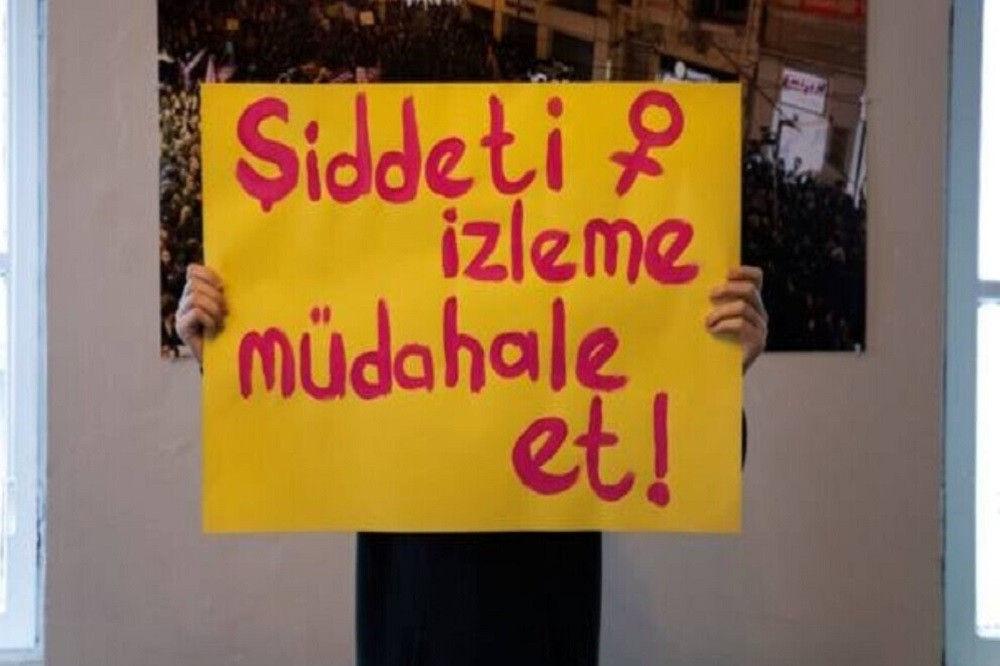 Şiddeti
izleme
müdahale
et!